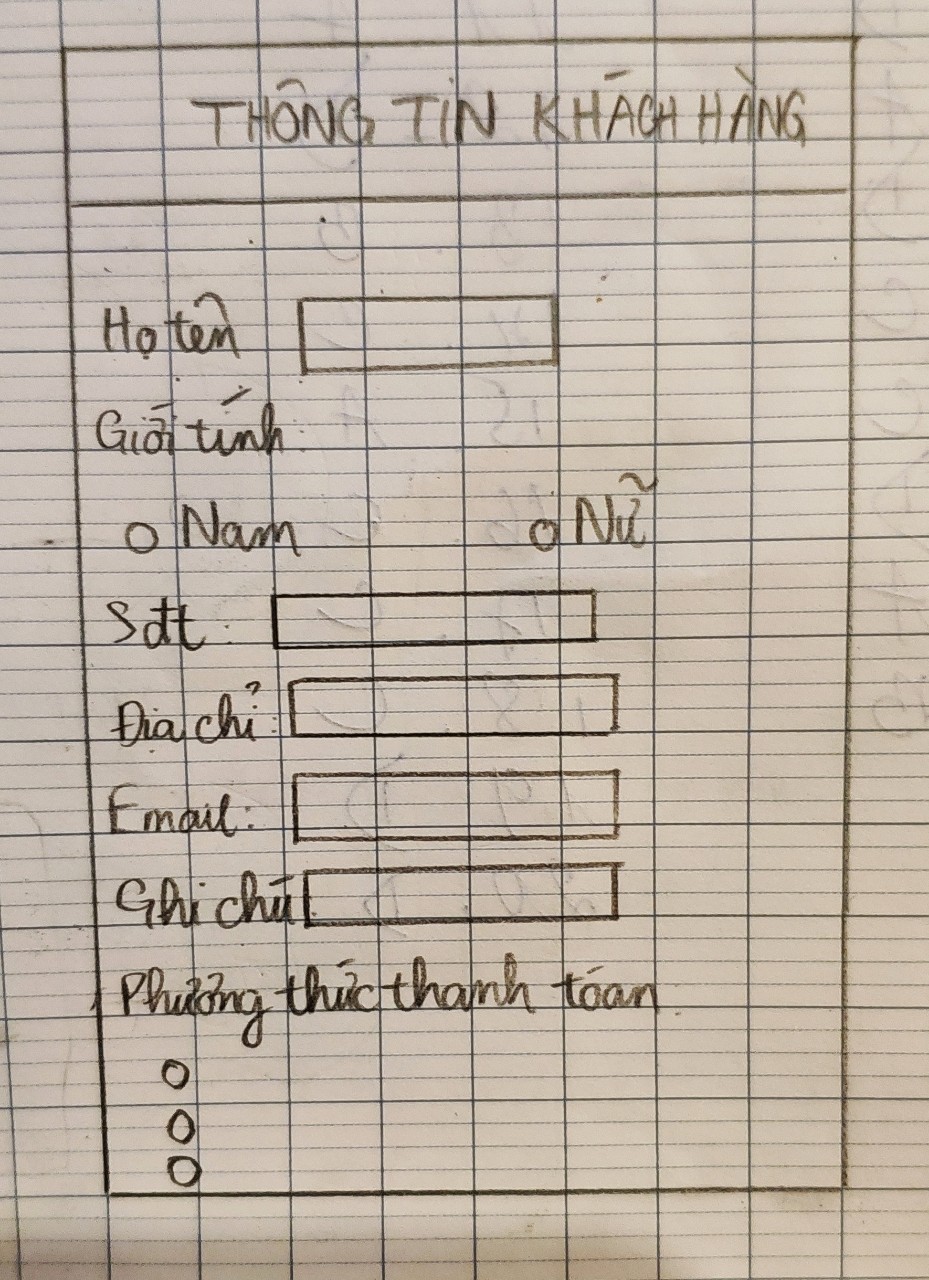 THÔNG TIN KHÁCH HÀNG
Họ tên
Giới tính:
Nam Nữ
Sđt:
Địa chỉ:
Email:
Ghi chú
Phương thức thanh tóan